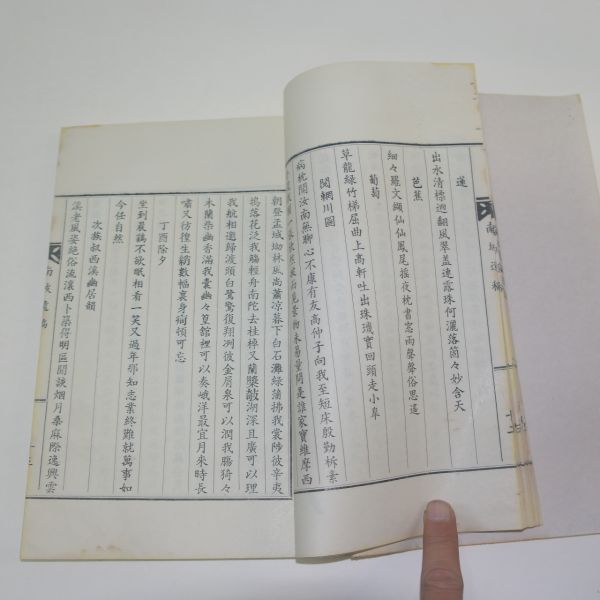 蓮
出水清標迥翻風翠盖連露珠何灑落箇々妙含天
芭蕉
細々羅文纈仙仙鳳尾搖夜枕書窓雨聲聲俗思遙
葡萄
草龍緑竹梯屈曲上高軒吐出珠璣寶回頭走小阜
閱輞川圖
病枕閒汝南無聊心不康有友高仲子向我至短床殷勤柝素
易量問是誰家寶維摩西
朝登孟城坳林風尚蕭凉暮下白石灘綠蒲拂我裳陟彼辛夷
塢落花泛我觴輕舟南陀去桂棹又蘭槳欹湖深且廣可以理
我航相邀歸渡頭白鷺驚復翔冽彼金屑泉可以潤我腸猗々
木蘭柴幽香滿我囊幽々篁館裡可以奏峨洋最宜月來時長
嘯又彷徨生綃數幅裏身痾頓可忘
丁酉除夕
坐到晨鷄不欲眠相看一笑又過年那知志業終難就萬事如
今任自然
次族叔西溪幽居韻
溪老風姿絶俗流瀼西卜築得明區閒談烟月桑麻際逸興雲